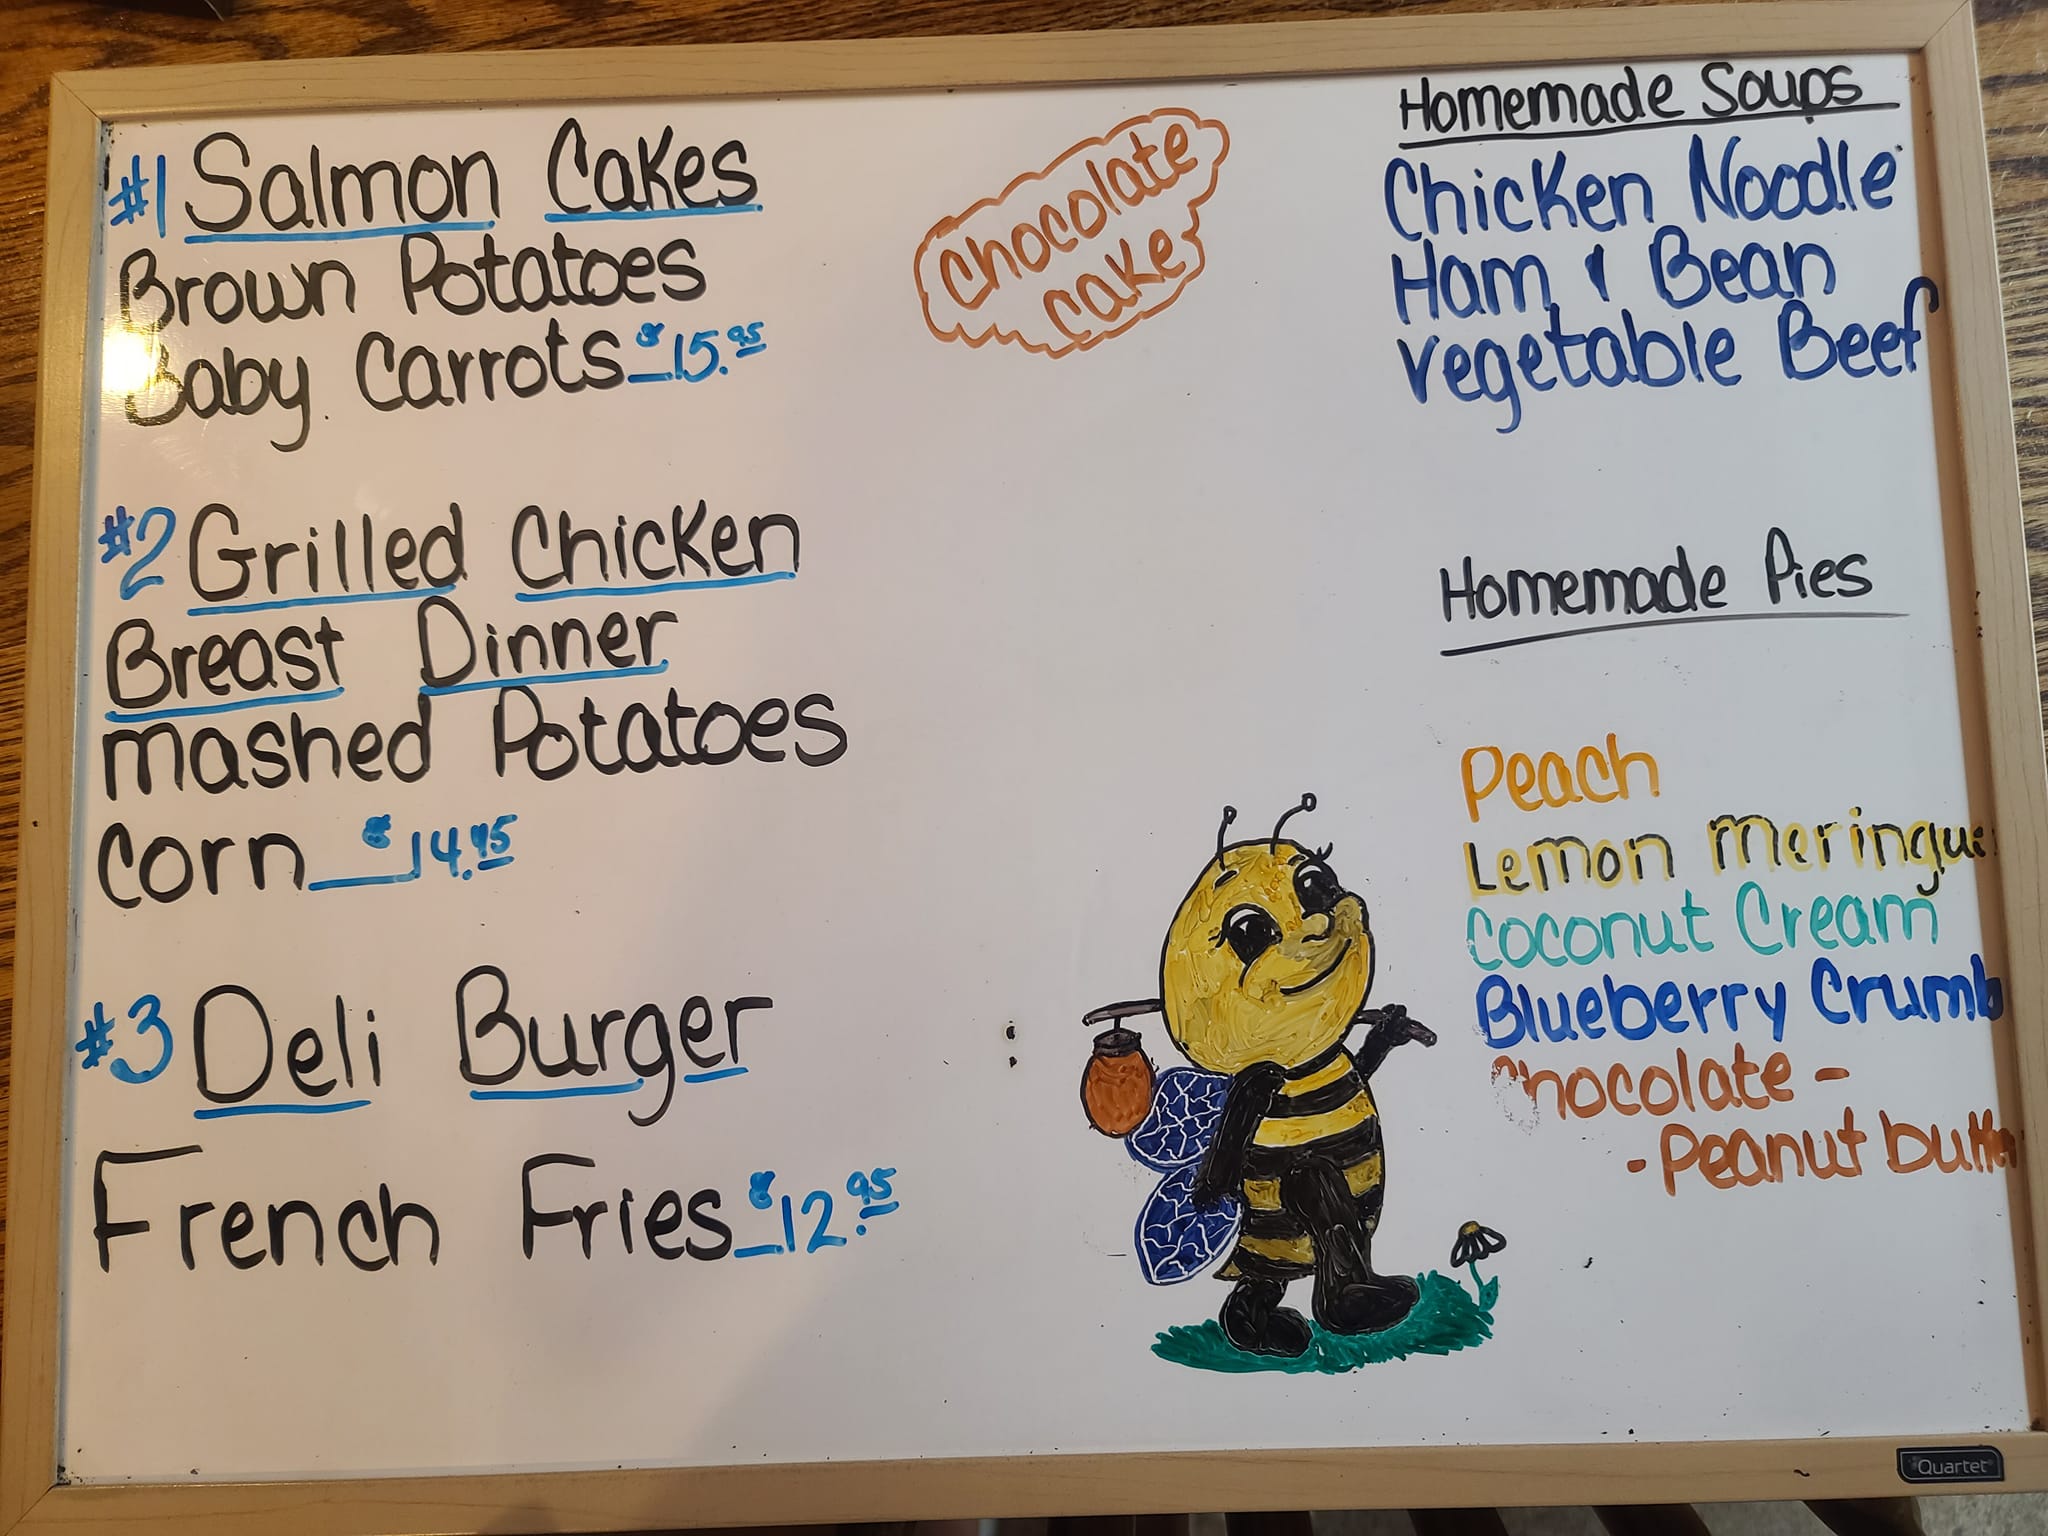 #1 Salmon Cakes
Brown Potatoes
Baby Carrots $15.95
#2 Grilled Chicken
Breast Dinner
Mashed Potatoes
Corn $14.95
#3 Deli Burger
French Fries $12.95
Chocolate
Cake
Homemade Soups
Chicken Noodle
Ham & Bean
Vegetable Beef
Homemade Pies
Peach
Lemon Meringue
Coconut Cream
Blueberry Crumb
Chocolate -
- Peanut butter
Quartet